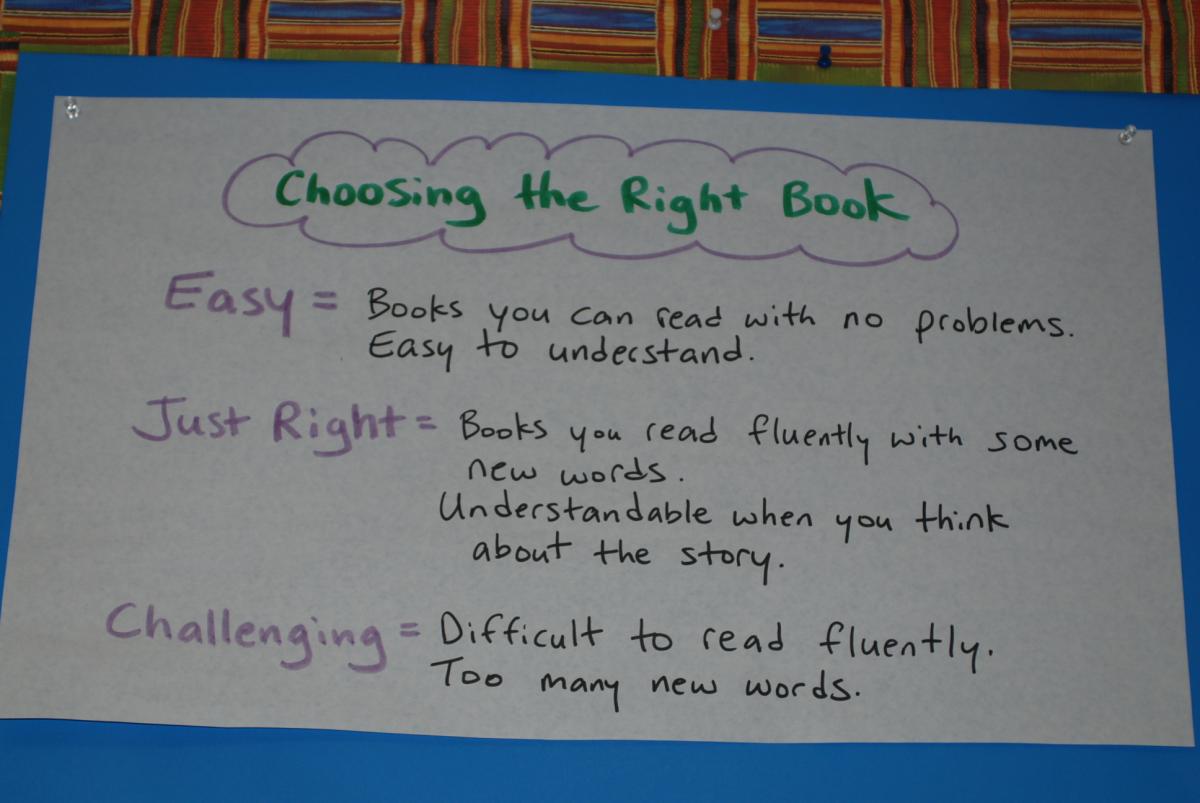 Choosing the Right Book
Easy = Books you can read with no problems.
Easy to understand.
Just Right = Books you read fluently with some
new words.
Understandable when you think
about the story.
Challenging = Difficult to read fluently.
Too many new words.